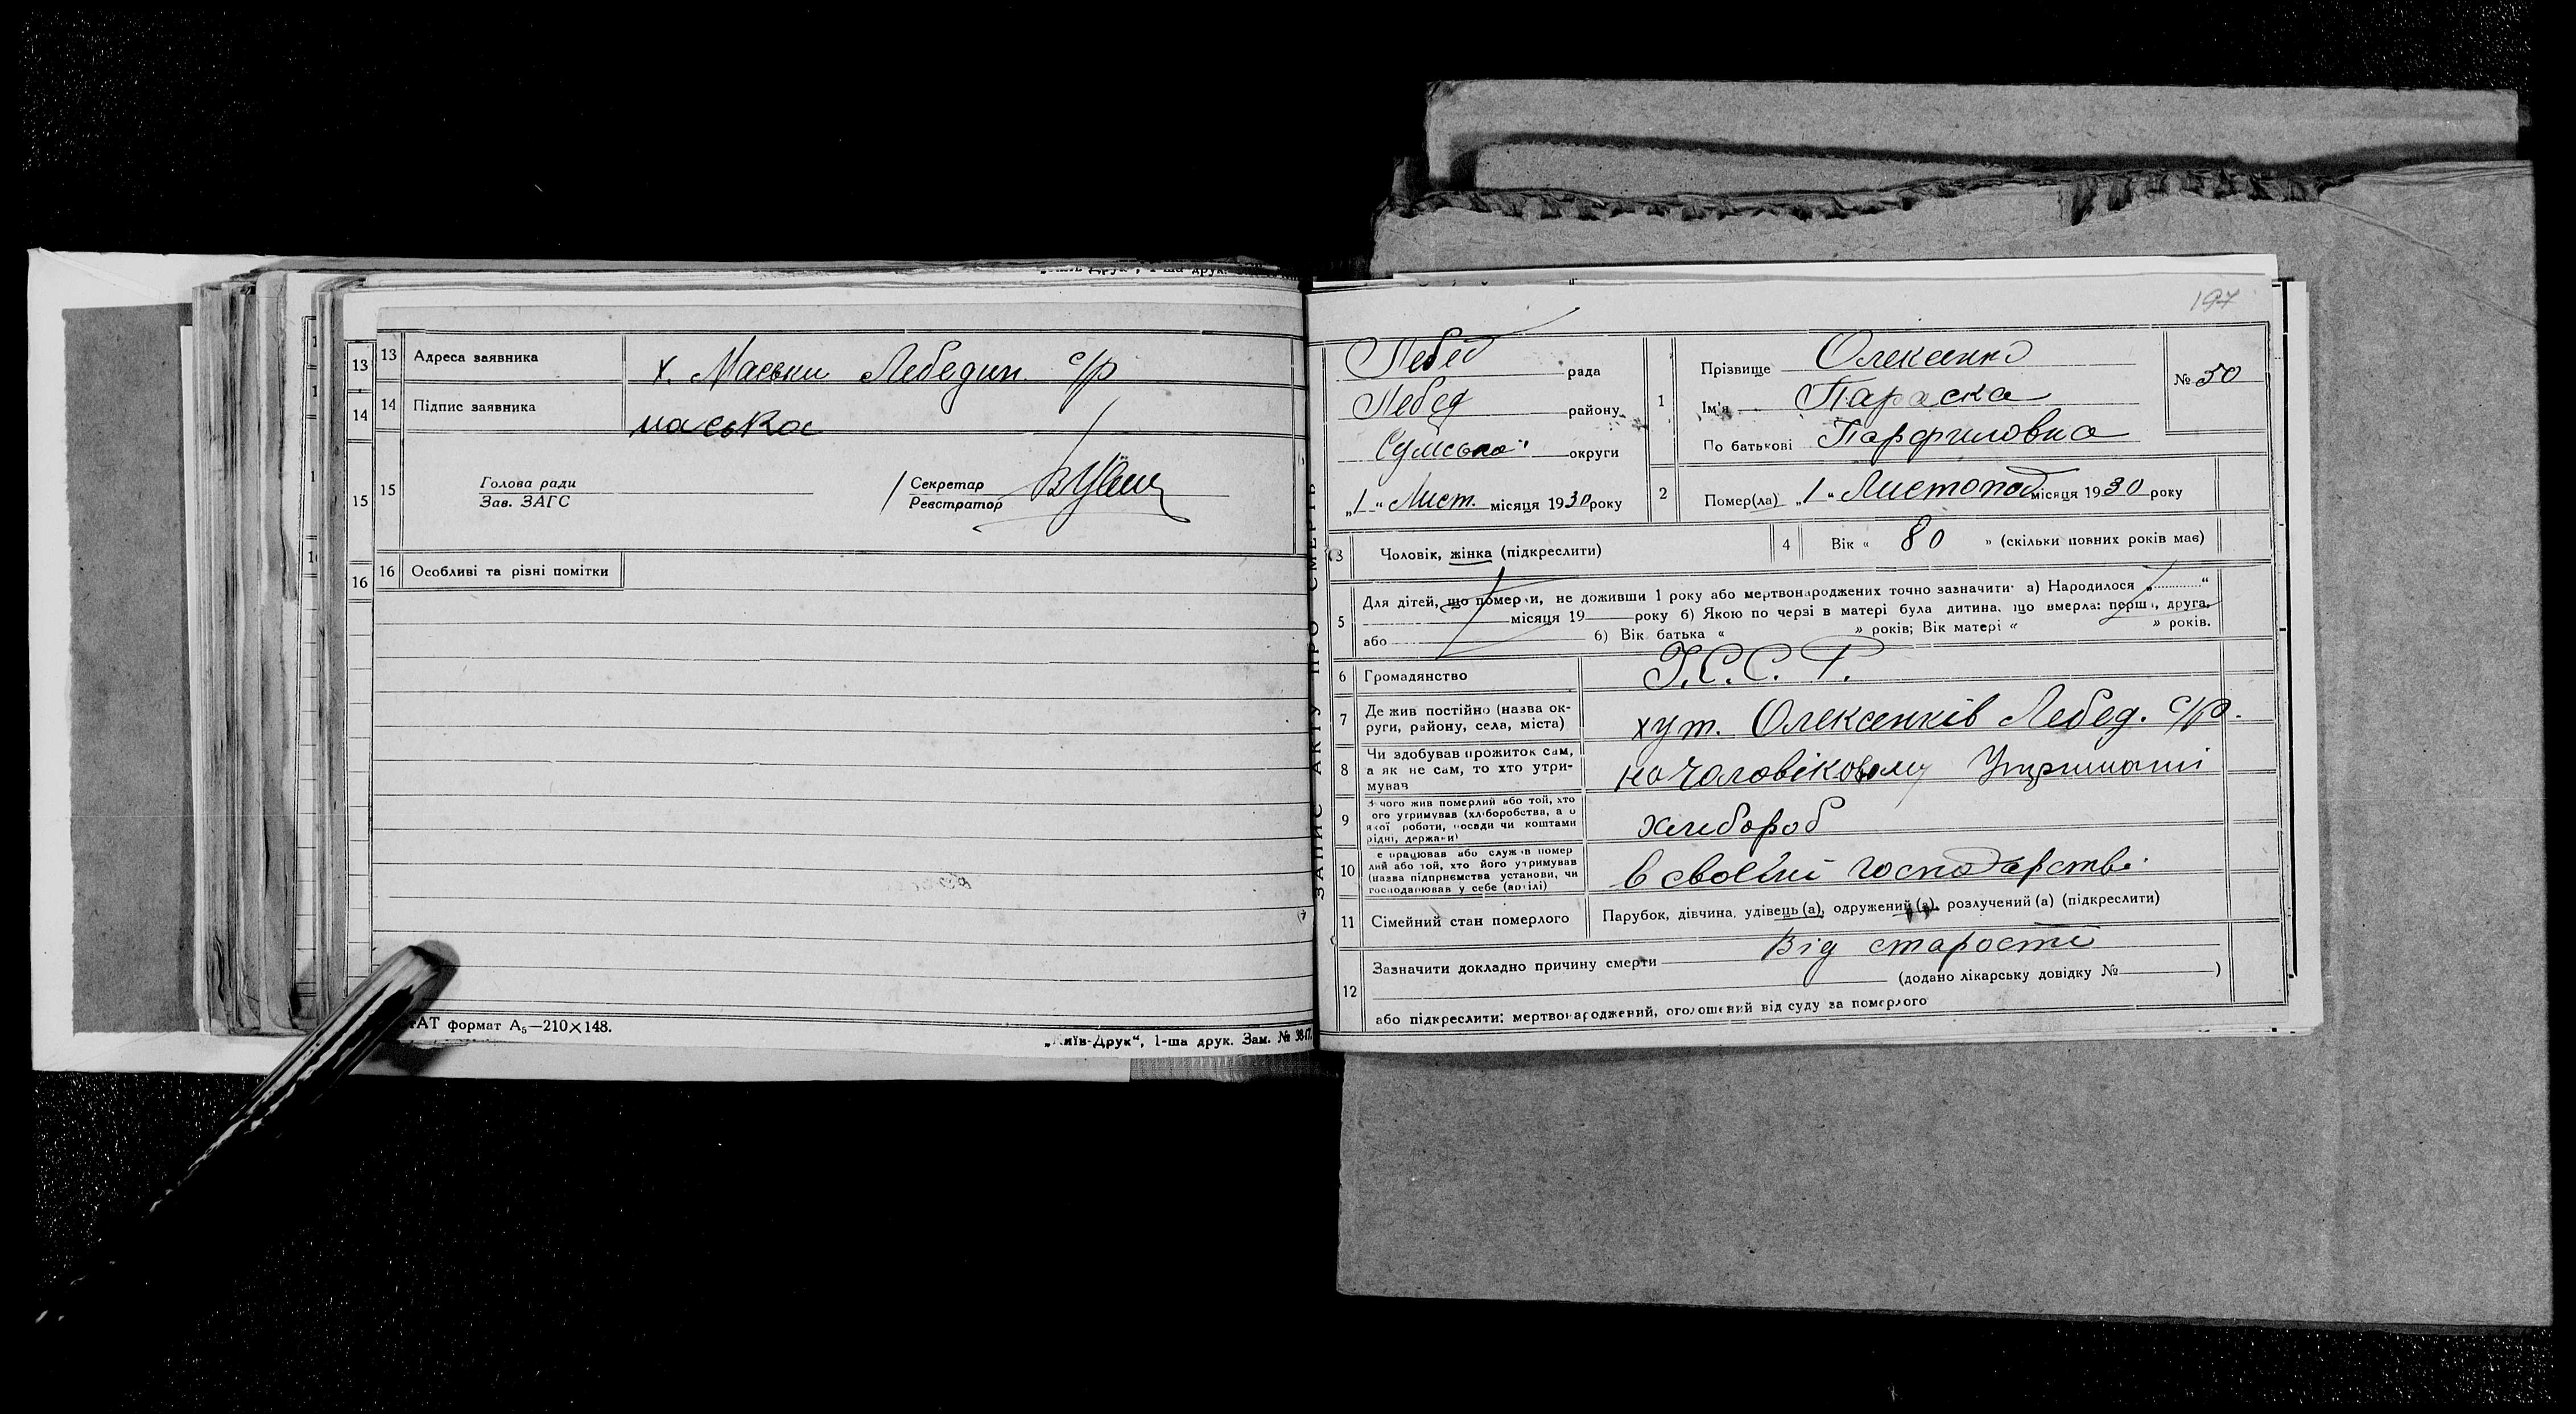 13 Адреса заявника х. Маськи Лебедин. с/р
14 Підпис заявника маська
15 Голова ради
Зав. ЗАГС
Секретар
Реєстратор
16 Особливі та різні помітки
13
14
15
16
ТАТ формат А₅—210×148.
„Київ-Друк“, 1-ша друк. Зам. №
ЗАПИС АКТУ ПРО СМЕРТЬ
197
Лебед рада
Лебед району
Сумської округи
„1“ Лист. місяця 1930 року
1 Прізвище Олексенко
Ім'я Параска
По батькові Парфиловна
№ 50
2 Помер(ла) „1“ Листопад місяця 1930 року
3 Чоловік, жінка (підкреслити)
4 Вік « 80 » (скільки повних років має)
5 Для дітей, що померли, не доживши 1 року або мертвонароджених точно зазначити: а) Народилося „ “
місяця 19 року б) Якою по черзі в матері була дитина, що вмерла: перша, друга,
або б) Вік батька « » років; Вік матері « » років.
6 Громадянство У.С.С.Р.
7 Де жив постійно (назва ок-
руги, району, села, міста) хут. Олексенків Лебед. с/р.
8 Чи здобував прожиток сам,
а як не сам, то хто утри-
мував на чоловіковому Утриманні
9 З чого жив померлий або той, хто
ого утримував (хліборобства, а о
якої роботи, посади чи коштами
рідні, держави) хлибороб
10 е працював або служив помер
лий або той, хто його утримував
(назва підприємства установи, чи
господарював у себе (артілі) в своєїй господарстві
11 Сімейний стан померлого Парубок, дівчина, удівець (а), одружений (а), розлучений (а) (підкреслити)
12 Зазначити докладно причину смерти Від старости
(додано лікарську довідку № )
або підкреслити: мертвонароджений, оголошений від суду за померлого